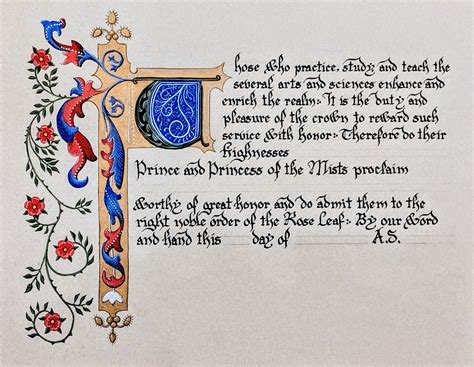 Those who practice, study and teach the
several arts and sciences enhance and
enrich the realm:· It is the duty and
pleasure of the crown to reward such
service with honor:· Therefore do their
Highnesses
Prince and Princess of the Mists proclaim
worthy of great honor and do admit them to the
right noble order of the Rose Leaf:· By our word
and hand this day of A.S.